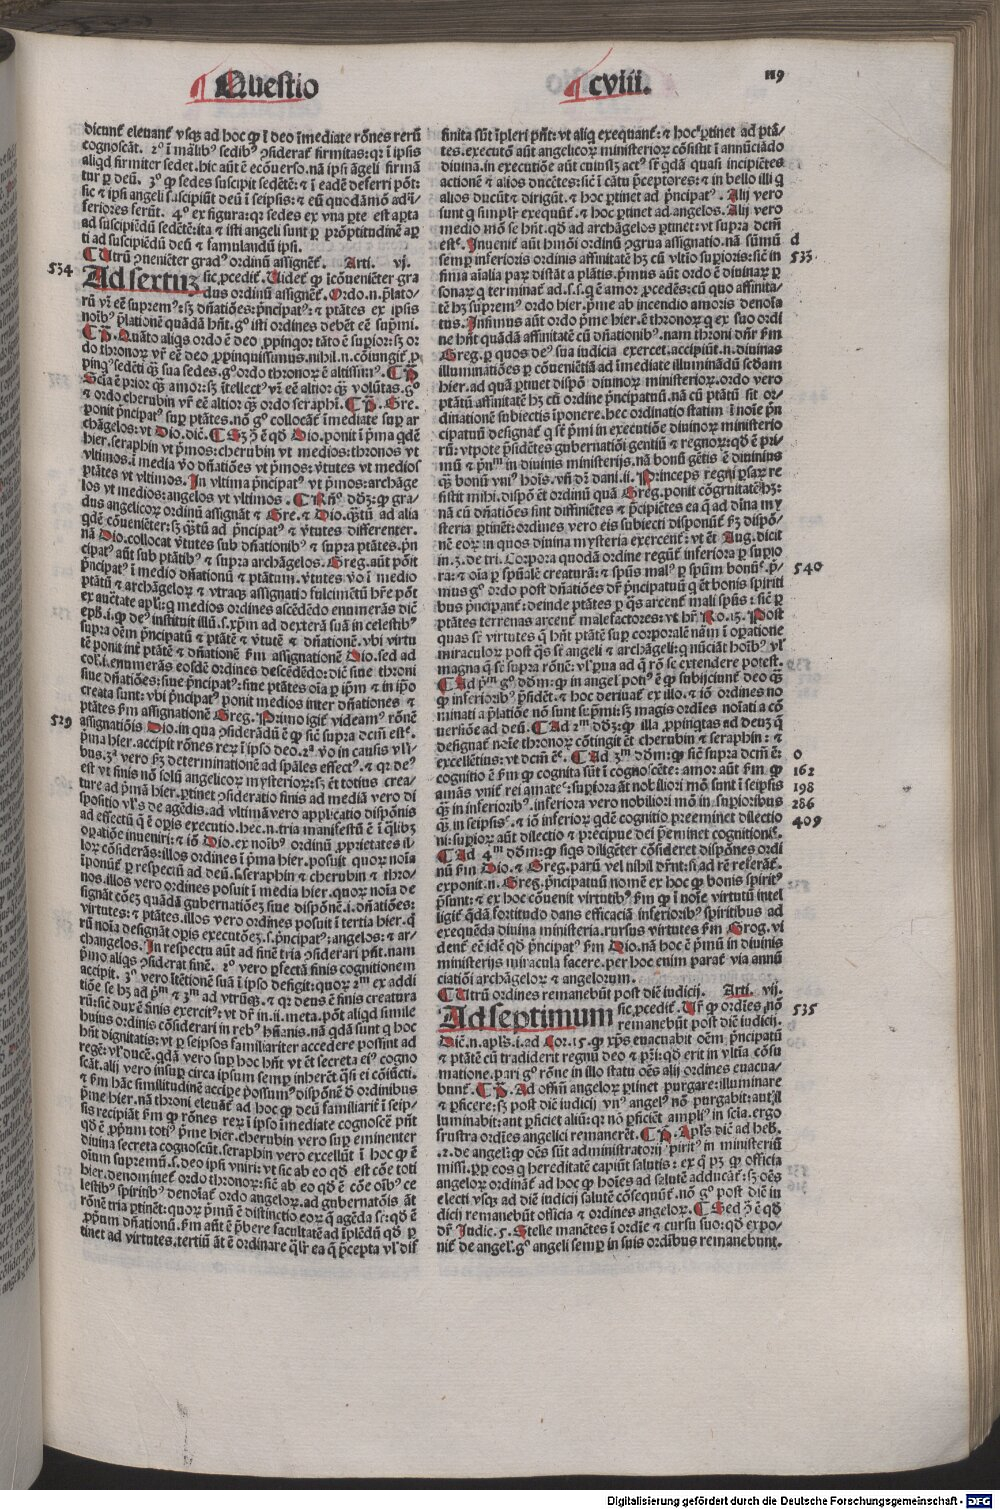 Questio
cviii.
119
dicunt᷑ eleuant᷑ vsq₃ ad hoc ꝙ ī deo īmediate rōnes rerū
cognoscāt. 2º ī mālibꝰ sedibꝰ ꝯsiderat᷑ firmitas: qꝛ ī ipsis
aliqd firmiter sedet. hic aūt ē ecōuerso. nā ip̄i āgeli firmā
tur ꝑ deū. 3º ꝙ sedes suscipit sedētē: ⁊ ī eadē deferri pōt:
sic ⁊ ip̄i angeli suscipiūt deū ī seipsis: ⁊ eū quodāmō ad ī
feriores ferūt. 4º ex figura: qꝛ sedes ex vna ꝑte est aꝑta
ad suscipiēdū sedētē: ita ⁊ isti angeli sunt ꝑ ꝓmptitudinē aꝑ
ti ad suscipiēdū deū ⁊ famulandū ipsi.
Utrū ꝯueniēter gradꝰ ordinū assignēt᷑. Arti. vj.
534
Ad sextuꝫ sic ꝓcedit᷑. Videt᷑ ꝙ īcōueniēter gra
dus ordinū assignēt᷑. Ordo .n. p̄lato⸗
rū vr̄ eē supremꝰ: sꝫ dn̄atiōes: p̄ncipatꝰ: ⁊ ptātes ex ipsis
noībꝰ p̄lationē quādā hn̄t. gº isti ordines debēt eē sup̄mi.
P̄. Quāto aliqs ordo ē deo ꝓpinqor tāto ē supior: sꝫ or
do thronoꝝ vr̄ eē deo ꝓpinquissimus. nihil .n. cōiungit᷑ ꝓ
pinqꝰ sedēti qȝ̄ sua sedes. gº ordo thronoꝝ ē altissimꝰ. P̄.
Scīa ē prior qȝ̄ amor: sꝫ ītellectꝰ vr̄ eē altior qȝ̄ volūtas. gº
⁊ ordo cherubin vr̄ eē altior qȝ̄ ordo seraphī. P̄. Gre.
ponit p̄ncipatꝰ supꝛ ptātes. nō gº collocāt᷑ īmediate supꝛ ar
chāgelos: vt Dio. dic̄. Sꝫ ꝯ̄ ē qd̄ Dio. ponit ī p̄ma qdē
hier. seraphin vt p̄mos: cherubin vt medios: thronos vt
vltimos. ī media v̄o dn̄atiōes vt p̄mos: v̄tutes vt medios
ptātes vt vltimos. In vltima p̄ncipatꝰ vt p̄mos: archāge
los vt medios: angelos vt vltimos. Rn̄º dd̄ꝫ: ꝙ gra⸗
dus angelicoꝝ ordinū assignāt ⁊ Gre. ⁊ Dio. qȝ̄tū ad alia
qdē cōueniēter: sꝫ qȝ̄tū ad p̄ncipatꝰ ⁊ v̄tutes differenter.
nā Dio. collocat v̄tutes sub dn̄ationibꝰ ⁊ supra ptātes. p̄n
cipatꝰ aūt sub ptātibꝰ ⁊ supra archāgelos. Greg. aūt pōit
p̄ncipatꝰ ī medio dn̄ationū ⁊ ptātum. v̄tutes v̄o ī medio
ptātū ⁊ archāgeloꝝ ⁊ vtraqꝫ assignatio fulcimētū hr̄e pōt
ex auctate apl̄i: q medios ordines ascēdēdo enumerās dic̄
eph̄. i. ꝙ deꝰ instituit illū .s. xp̄m ad dexterā suā in celestibꝰ
supra oēm p̄ncipatū ⁊ ptātē ⁊ v̄tutē ⁊ dn̄ationē. vbi virtu
tē ponit int᷑ ptātē ⁊ dn̄ationē ẜm assignationē Dio. sed ad
col̄. i. enumerās eosdē ordines descēdēdo: dic̄ siue throni
siue dn̄atiōes: siue p̄ncipatꝰ: siue ptātes oīa ꝑ ip̄m ⁊ in ip̄o
creata sunt: vbi p̄ncipatꝰ ponit medios inter dn̄ationes ⁊
ptātes ẜm assignationē Greg. Primo igit᷑ videamꝰ rōnē
529
assignatiōis Dio. in qua ꝯsiderādū ē ꝙ sic supra dcm̄ estº.
p̄ma hier. accipit rōnes reꝝ ī ipso deo. 2ª v̄o in causis vl̄i⸗
bus. 3ª vero ẜꝫ determinationē ad sp̄ales effectꝰ. ⁊ qꝛ deꝰ
est vt finis nō solū angelicoꝝ mysterioꝝ: sꝫ ēt totius crea⸗
ture ad p̄mā hier. ꝑtinet ꝯsideratio finis ad mediā vero di
spositio vl̄s de agēdis. ad vltimā vero applicatio dispōnis
ad effectū q̄ ē oꝑis executio. hec .n. tria manifestū ē ī qlibꝫ
oꝑatiōe inueniri: ⁊ iō Dio. ex noībꝰ ordinū ꝓprietates il⸗
loꝝ cōsiderās: illos ordines ī p̄ma hier. posuit quoꝝ noīa
īponūt᷑ ꝑ respectū ad deū .s. seraphin ⁊ cherubin ⁊ thro⸗
nos. illos vero ordines posuit ī media hier. quoꝝ noīa de
signāt cōēꝫ quādā gubernatiōeꝫ siue dispōnē .i. dn̄atiōes:
virtutes: ⁊ ptātes. illos vero ordīnes posuit ī tertia hier. q̄
rū noīa designāt opis executōeꝫ .s. p̄ncipatꝰ: angelos: ⁊ ar⸗
changelos. In respectu aūt ad finē tria ꝯsiderari pn̄t. nam
p̄mo aliqs ꝯsiderat finē. 2º vero ꝑfectā finis cognitionem
accipit. 3º vero ītētionē suā ī ipso defigit: quoꝝ 2ᵐ ex addi
tiōe se hꝫ ad p̄ᵐ ⁊ 3ᵐ ad vtrūqꝫ. ⁊ qꝛ deus ē finis creatura
rū: sic dux ē finis exercitꝰ: vt dr̄ in .ii. meta. pōt aliqd simile
huius ordinis cōsiderari in rebꝰ hūanis. nā qdā sunt q hoc
hn̄t dignitatis: vt ꝑ seipsos familiariter accedere possint ad
regē: vl̓ ducē. qdā vero supꝛ hoc hn̄t vt ēt secreta eiꝰ cogno
scāt. alij vero insupꝛ circa ipsum semꝑ inherēt qsi ei cōiūcti.
⁊ ẜm hāc similitudinē accipe possumꝰ dispōnē d̄ ordinibus
p̄me hier. nā throni eleuāt᷑ ad hoc ꝙ deū familiarit᷑ ī seip⸗
sis recipiāt ẜm ꝙ rōnes reꝝ ī ipso īmediate cognoscē pn̄t
qd̄ ē ꝓpriū totiꝰ p̄me hier. cherubin vero supꝛ eminenter
diuina secreta cognoscūt. seraphin vero excellūt ī hoc ꝙ ē
oīum supremū .s. deo ip̄i vniri: vt sic ab eo qd̄ est cōe toti
hier. denominet᷑ ordo thronoꝝ: sic̄ ab eo qd̄ ē cōe oībꝰ ce
lestibꝰ spiritibꝰ denoīat᷑ ordo angeloꝝ. ad gubernatōis āt
rōnē tria ꝑtinent: quoꝝ p̄mū ē distinctio eoꝝ q̄ agēda sr̄: qd̄ ē
ꝓpriū dn̄ationū. ẜm aūt ē p̄bere facultatē ad īplēdū qd̄ ꝑ
tinet ad virtutes. tertiū āt ē ordinare qlr̄ ea q̄ p̄cepta vl̓ dif
finita sūt īpleri pn̄t: vt aliq exequant᷑: ⁊ hoc ꝑtinet ad ptā⸗
tes. executō aūt angelicoꝝ ministerioꝝ cōsistit ī annūciādo
diuina. in executiōe aūt cuiuslꝫ actꝰ sr̄ qdā quasi incipiētes
actionē ⁊ alios ducētes: sic̄ ī cātu p̄ceptores: ⁊ in bello illi q
alios ducūt ⁊ dirigūt. ⁊ hoc ꝑtinet ad p̄ncipatꝰ. Alij vero
sunt q simplr̄ exequunt᷑. ⁊ hoc ꝑtinet ad angelos. Alij vero
medio mō se hn̄t. qd̄ ad archāgelos ꝑtinet: vt supra dcm̄
estº. Inuenit᷑ aūt hmōi ordinū ꝯgrua assignatio. nā sūmū
d
semꝑ inferioris ordinis affinitatē hꝫ cū vltīo supioris: sic̄ in
533
fima aīalia paꝝ distāt a plātis. p̄mus aūt ordo ē diuinaꝝ ꝑ
sonaꝝ q terminat᷑ ad .s.s. q ē amor ꝓcedēs: cū quo affinita⸗
tē hꝫ supremꝰ ordo hier. p̄me ab incendio amoris denoīa
tus. Infimus aūt ordo p̄me hier. ē thronoꝝ q ex suo ordi
ne hn̄t quādā affinitatē cū dn̄ationibꝰ. nam throni dn̄r ẜm
Greg. ꝑ quos deꝰ sua iudicia exercet. accipiūt .n. diuinas
illuminatiōes ꝑ cōueniētiā ad īmediate illumināndū secdam
hier. ad quā ꝑtinet dispō diuinoꝝ ministerioꝝ. ordo vero
ptātū affinitatē hꝫ cū ordine p̄ncipatuū. nā cū ptātū sit or⸗
dinationē subiectis īponere. hec ordinatio statim ī noīe p̄n
cipatuū designat᷑ q sr̄ p̄mi in executiōe diuinoꝝ ministerio
rū: vtpote p̄sidētes gubernatiōi gentiū ⁊ regnoꝝ: qd̄ ē pri⸗
mū ⁊ p̄nᵐ in diuinis ministerijs. nā bonū gētis ē diuinius
qȝ̄ bonū vniꝰ hoīs. vn̄ dr̄ dani .ii. Princeps regni psaꝝ re
stitit mihi. dispō ēt ordinū quā Greg. ponit cōgruitatē hꝫ:
nā cū dn̄atiōes sint diffiniētes ⁊ p̄cipiētes ea q̄ ad diuina my
steria ꝑtinēt: ordines vero eis subiecti disponūt᷑ ẜꝫ dispō⸗
nē eoꝝ in quos diuina mysteria exercent᷑: vt ēt Aug. dicit
in .3. de tri. Corpora quodā ordine regūt᷑ inferiora ꝑ supio
ra: ⁊ oīa ꝑ sp̄ualē creaturā: ⁊ sp̄us malꝰ ꝑ sp̄um bonū. p̄⸗
540
mus gº ordo post dn̄atiōes dr̄ p̄ncipatuū q ēt bonis spiriti
bus p̄ncipant᷑: deinde ptātes ꝑ qs arcent᷑ mali sp̄us: sic̄ ꝑ
ptātes terrenas arcent᷑ malefactores: vt hr̄ Ro. 13. Post
quas sr̄ virtutes q hn̄t ptātē supꝛ corporalē nām ī oꝑatione
miraculoꝝ post qs sr̄ angeli ⁊ archāgeli: q nūciāt hoībꝰ vl̓
magna q̄ sr̄ supra rōnē: vl̓ ꝑua ad q̄ rō se extendere potest.
Ad p̄ᵐ gº dd̄m: ꝙ in angel̓ potiꝰ ē ꝙ subijciunt᷑ deo qȝ̄
ꝙ inferioribꝰ p̄sidēt: ⁊ hoc deriuat᷑ ex illo. ⁊ iō ordines no
minati a p̄latiōe nō sunt sup̄mi: sꝫ magis ordīes noīati a cō
uersiōe ad deū. Ad 2ᵐ dd̄ꝫ: ꝙ illa ꝓpinqtas ad deuꝫ q̄
designat᷑ noīe thronoꝝ cōtingit ēt cherubin ⁊ seraphin: ⁊
excellētius: vt dcm̄ ē. Ad 3ᵐ dd̄m: ꝙ sic̄ supra dcm̄ ē:
o
cognitio ē ẜm ꝙ cognita sūt ī cognoscēte: amor aūt ẜm ꝙ
162
amās vnit᷑ rei amateº: supiora āt nobiliori mō sunt ī seipsis
198
qȝ̄ in inferioribꝰ. inferiora vero nobiliori mō in supioribus
286
qȝ̄ in seipsisº. ⁊ iō inferioꝝ qdē cognitio p̄eminet dilectio
409
ni: supioꝝ aūt dilectio ⁊ precipue dei p̄eminet cognitioniº.
Ad 4ᵐ dd̄m: ꝙ siqs diligēter cōsideret dispōnes ordi
nū ẜm Dio. ⁊ Greg. parū vel nihil dr̄nt: si ad rē referāt᷑.
exponit .n. Greg. p̄ncipatuū nomē ex hoc ꝙ bonis spiritꝰ
p̄sunt: ⁊ ex hoc cōuenit virtutibꝰ ẜm ꝙ ī noīe virtutū intel
ligit᷑ qdā fortitudo dans efficaciā inferioribꝰ spiritibus ad
exequēda diuina ministeria. rursus virtutes ẜm Greg. vi
dent᷑ eē idē qd̄ p̄ncipatꝰ ẜm Dio. nā hoc ē p̄mū in diuinis
ministerijs miracula facere. per hoc enim parat᷑ via annū
ciatiōi archāgeloꝝ ⁊ angelorum.
Utrū ordines remanebūt post diē iudicij. Arti. vij.
Ad septimum sic ꝓcedit᷑. Vr̄ ꝙ ordīes nō
535
remanebūt post diē iudicij.
Dic̄ .n. apl̄s .i. ad Cor. 15. ꝙ xp̄s euacuabit oēm p̄ncipatū
⁊ ptātē cū tradiderit regnū deo ⁊ pr̄i: qd̄ erit in vltīa cōsu
matione. pari gº rōne in illo statu oēs alij ordines euacua⸗
bunt᷑. P̄. Ad offm̄ angeloꝝ ꝑtinet purgare: illuminare
⁊ ꝑficere: sꝫ post diē iudicij vnꝰ angelꝰ nō purgabit: aut il
luminabit: aut ꝑficiet aliū: qꝛ nō ꝓficiēt ampliꝰ in scīa. ergo
frustra ordīes angelici remanerēt. P̄. Apl̄s dic̄ ad heb̄.
.2. de angel̓: ꝙ oēs sūt administratorij spiritꝰ in ministeriū
missi. ꝓp eos q hereditatē capiūt salutis: ex q pꝫ ꝙ officia
angeloꝝ ordināt᷑ ad hoc ꝙ hoīes ad salutē adducāt᷑: sꝫ oēs
electi vsqꝫ ad diē iudicij salutē cōsequūt᷑. nō gº post diē iu
dicij remanebunt officia ⁊ ordines angeloꝝ. Sed ꝯ̄ ē qd̄
dr̄ Judic. 5. Stelle manētes ī ordīe ⁊ cursu suo: qd̄ expo⸗
nit᷑ de angel̓. gº angeli semꝑ in suis ordībus remanebunt.
Digitalisierung gefördert durch die Deutsche Forschungsgemeinschaft - DFG